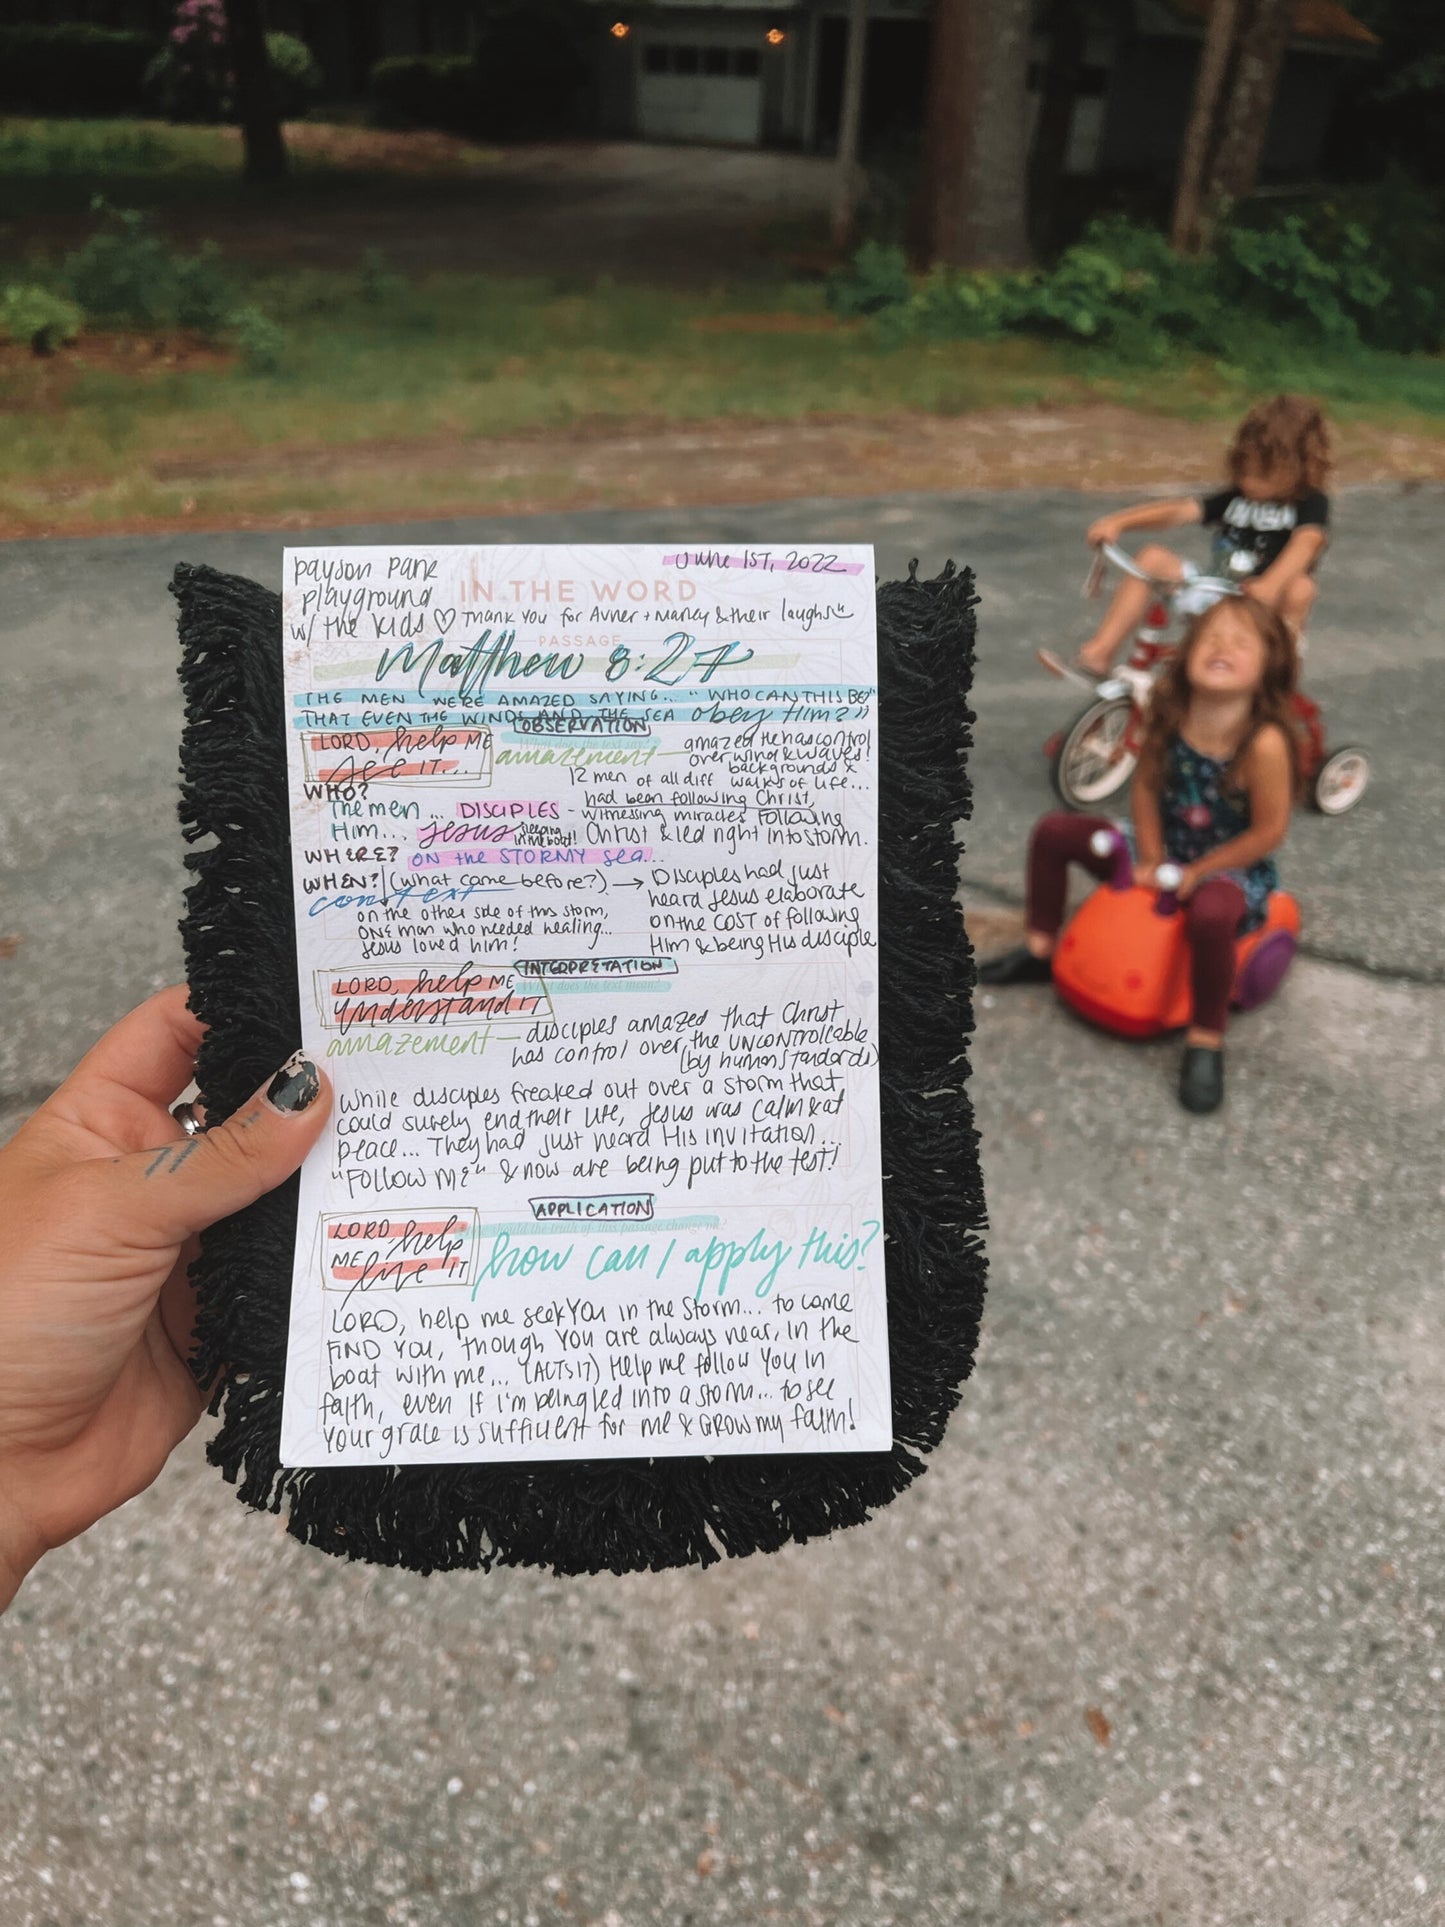 payson park
playground
w/ the kids ♡ Thank you for Avner + Marley & their laughs
June 1st, 2022
IN THE WORD
PASSAGE
Matthew 8:27
THE MEN WERE AMAZED SAYING... "WHO CAN THIS BE?
THAT EVEN THE WINDS AND THE SEA obey Him?"
OBSERVATION
LORD, help ME
see IT...
amazement — amazed He has control
over wind & waves!
12 men of all diff backgrounds &
walks of life...
WHO?
The men ... DISCIPLES - had been following Christ,
witnessing miracles following
Him... Jesus sleeping in the boat! Christ & led right into storm.
WHERE? ON the STORMY sea...
WHEN? (what came before?) → Disciples had just
context
heard Jesus elaborate
on the COST of following
Him & being His disciple
on the other side of this storm,
ONE man who needed healing...
Jesus loved him!
INTERPRETATION
What does the text mean?
LORD, help ME
understand IT
amazement — disciples amazed that Christ
has control over the UNCONTROLLABLE
(by human standards)
While disciples freaked out over a storm that
could surely end their life, Jesus was calm & at
peace... They had just heard His invitation...
"FOLLOW ME" & now are being put to the test!
APPLICATION
should the truth of this passage change me?
LORD, help
ME live IT
how can I apply this?
LORD, help me seek YOU in the storm... to come
FIND YOU, though YOU are always near, in the
boat with me... (ACTS 17) Help me follow You in
faith, even if i'm being led into a storm... to see
Your grace is sufficient for me & GROW my faith!